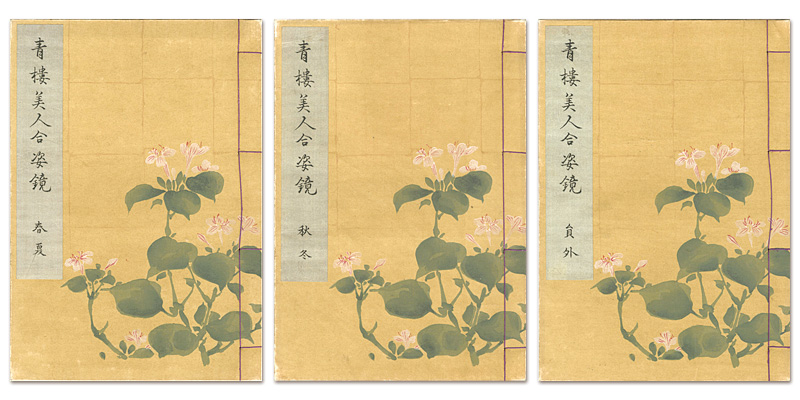 青樓美人合姿鏡
春夏
青樓美人合姿鏡
秋冬
青樓美人合姿鏡
員外